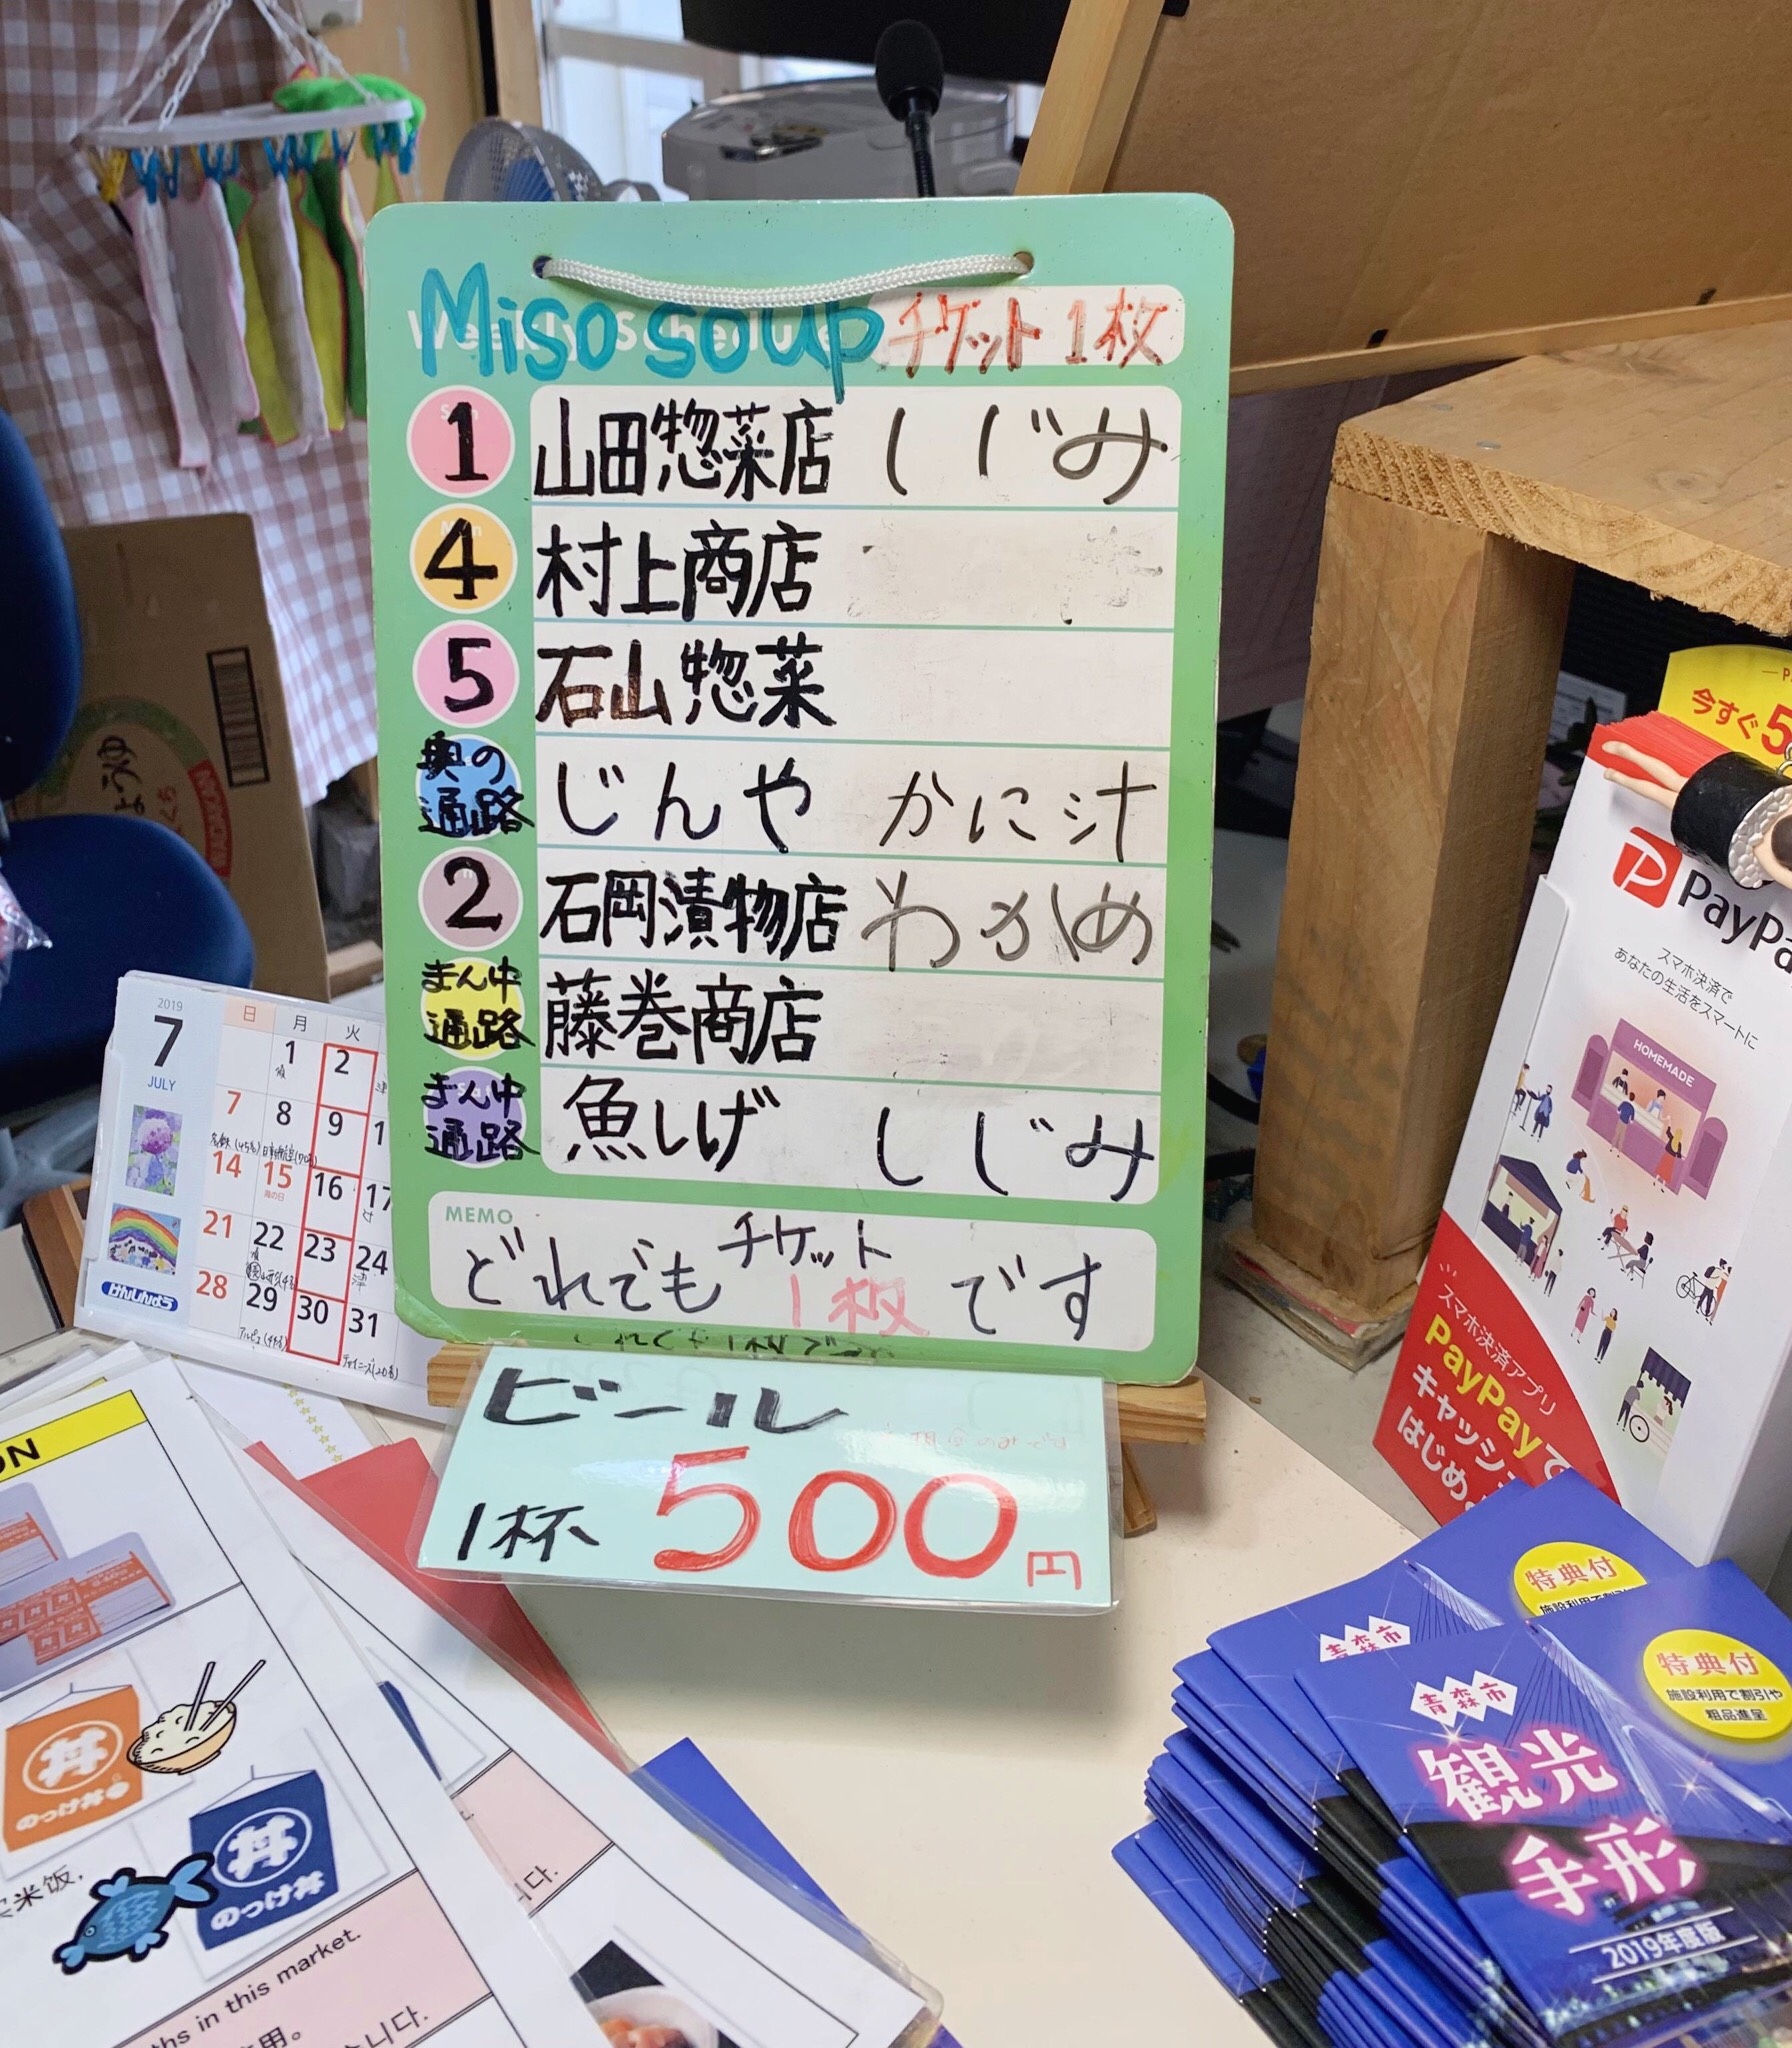 Miso soup チケット1枚
Weekly Schedule
1 山田惣菜店 しじみ
4 村上商店
5 石山惣菜
奥の通路 じんや かに汁
2 石岡漬物店 わかめ
まん中通路 藤巻商店
まん中通路 魚しげ しじみ
MEMO
どれでもチケット1枚です
ビール
1杯 500円
2019
7
JULY
日 月 火
1 2
7 8 9 1
14 15 16 17
海の日
21 22 23 24
28 29 30 31
けんしんよう
ON
丼
のっけ丼
丼
のっけ丼
米饭,
in this market.
用。
今すぐ5
PayPa
スマホ決済で
あなたの生活をスマートに
HOMEMADE
スマホ決済アプリ
PayPayで
キャッシ
はじめ
特典付
青森市
特典付
施設利用で割引や
粗品進呈
青森市
観光
手形
2019年度版